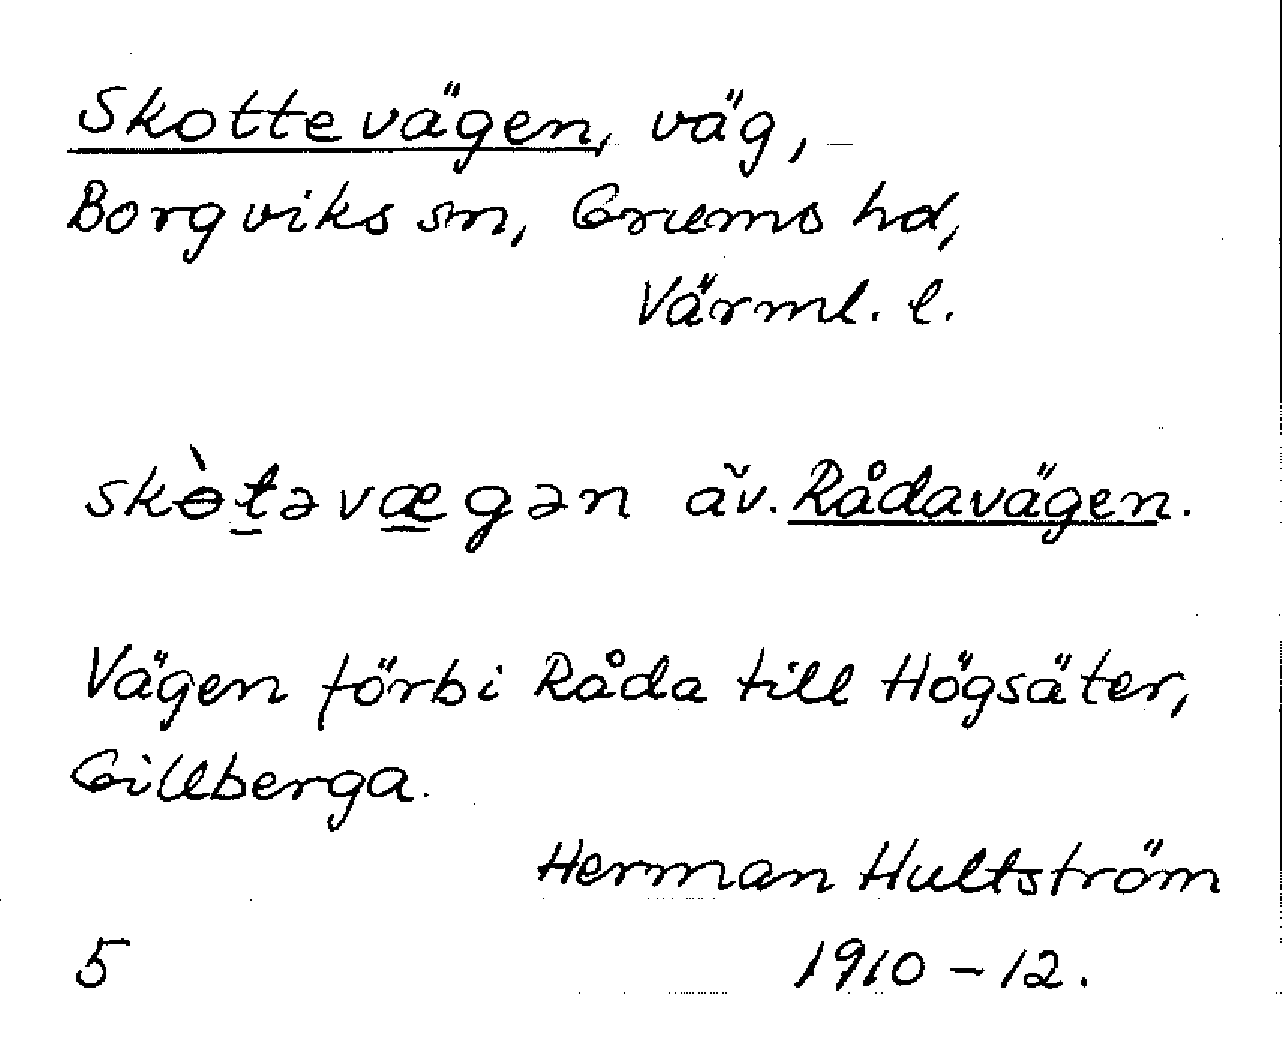 Skottevägen, väg,
Borgviks sn, Grums hd,
Värml. l.
skɵ̀t̲əvæ̲gən äv. Rådavägen.
Vägen förbi Råda till Högsäter,
Gillberga.
Herman Hultström
5 1910-12.